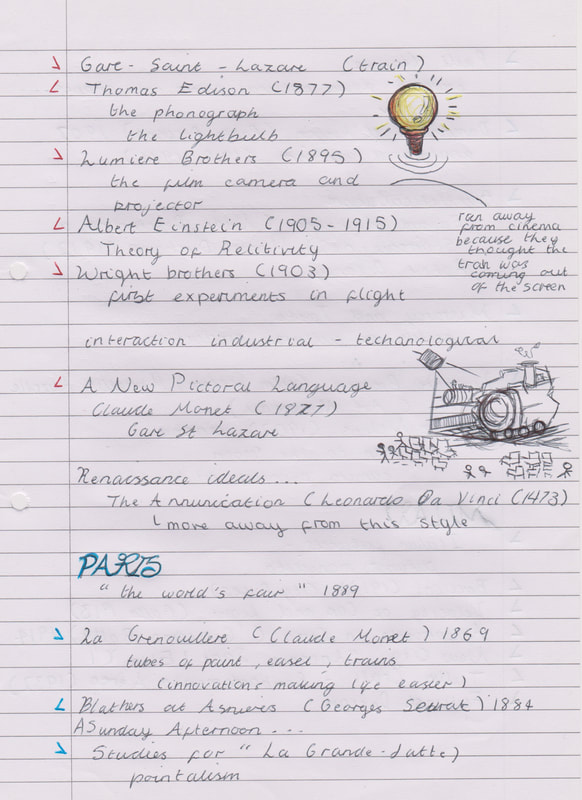 Gare - Saint - Lazare (train)
Thomas Edison (1877)
the phonograph
the lightbulb
Lumiere Brothers (1895)
the film camera and
projector
ran away
from cinema
because they
thought the
train was
coming out
of the screen
Albert Einstein (1905 - 1915)
Theory of Relitivity
Wright brothers (1903)
first experiments in flight
interaction industrial - techanological
A New Pictoral Language
Claude Monet (1877)
Gare St Lazare
Renaissance ideals...
The Annunication (Leonardo Da Vinci (1473)
more away from this style
PARIS
"the world's fair" 1889
La Grenouillere (Claude Monet) 1869
tubes of paint, easel, trains
(innovations making life easier)
Blathers at Asnieres (Georges Seurat) 1884
A Sunday Afternoon...
Studies for "La Grande-Jatte)
pointalism